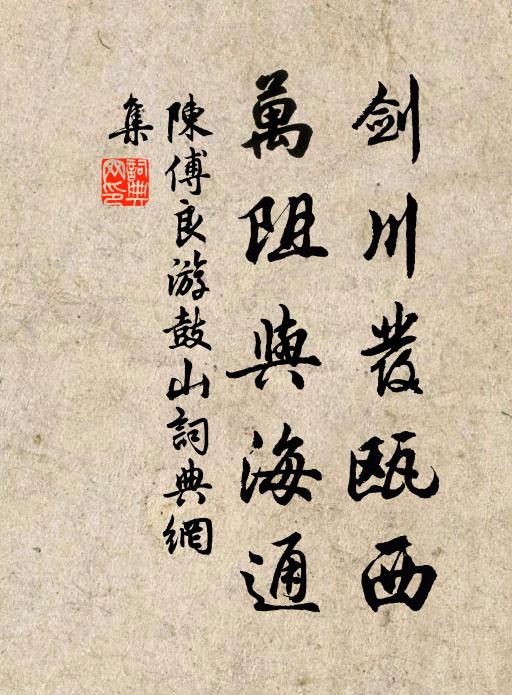 劍川發甌西
萬阻與海通
陳傅良游鼓山詞典網
集
詞典網印